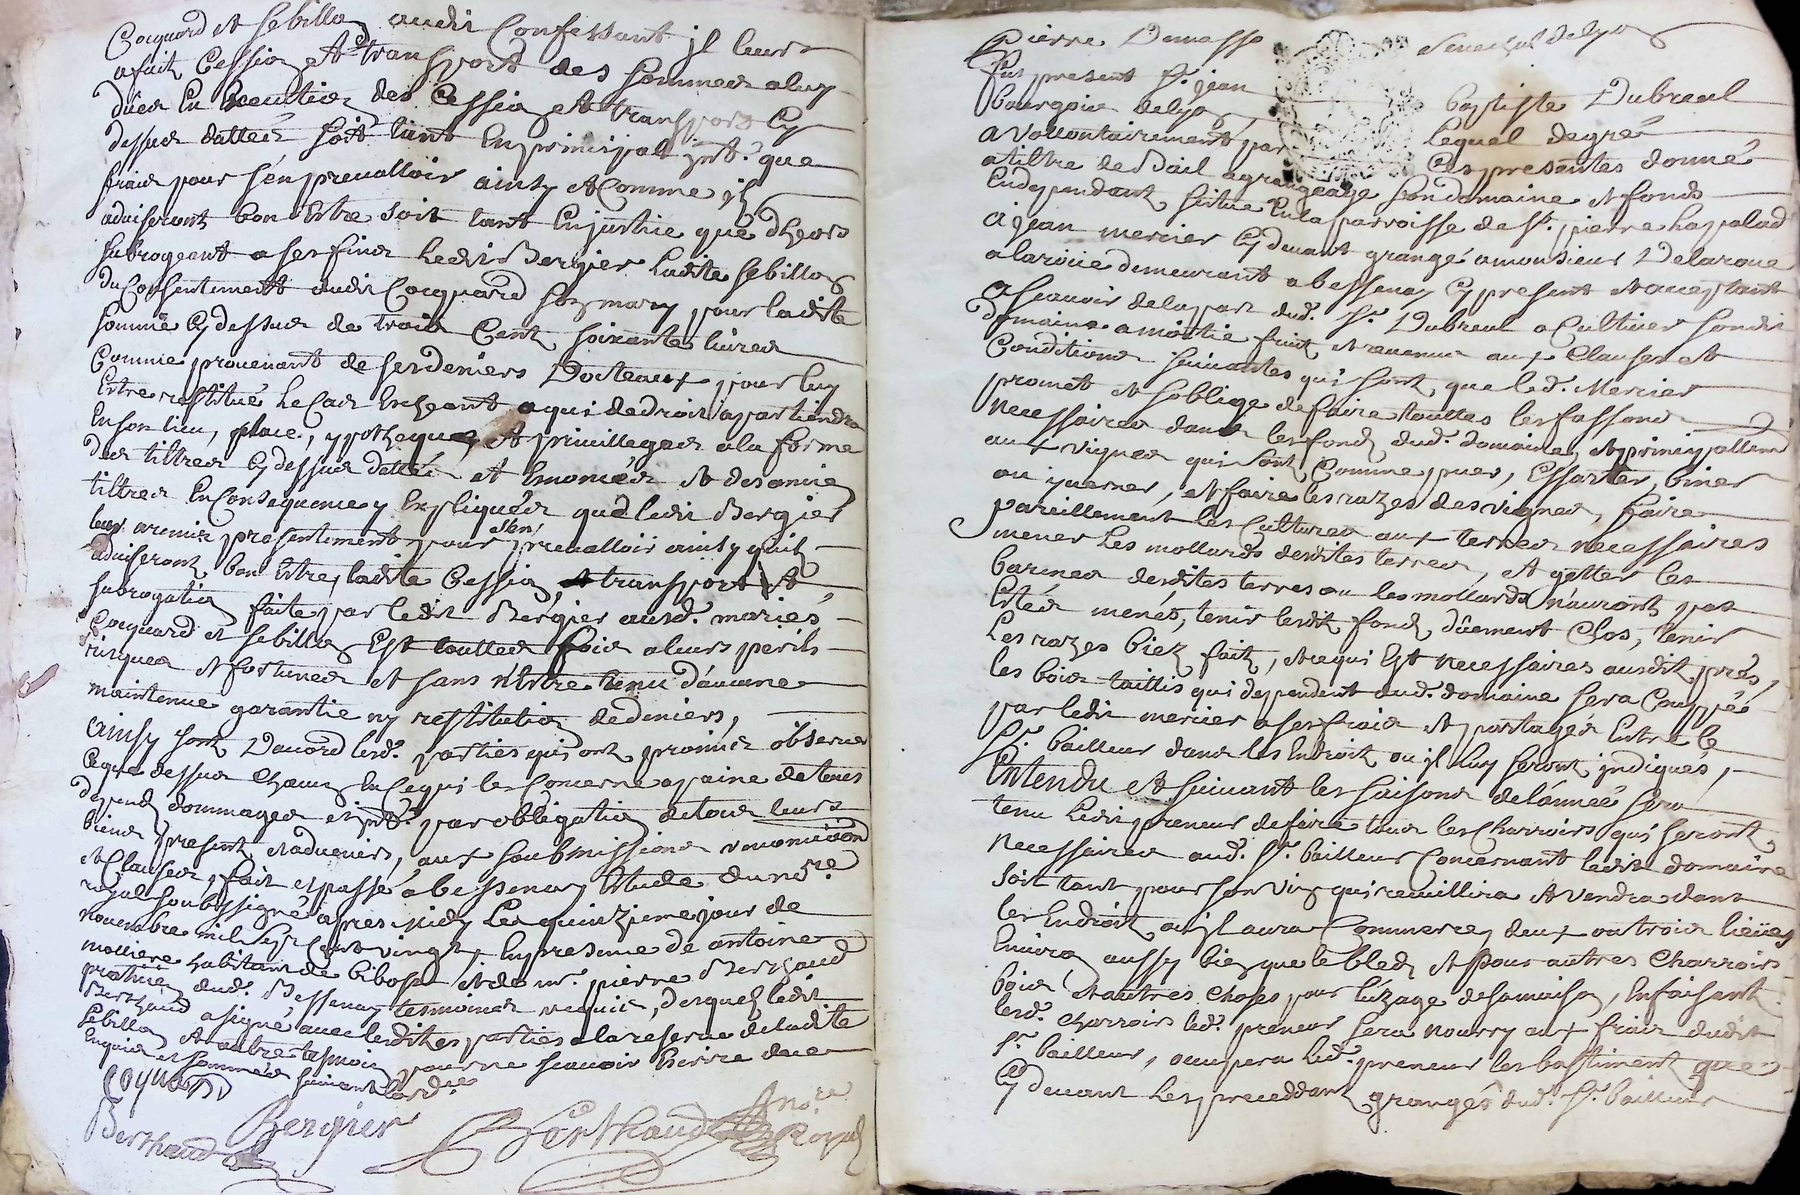 Cocquard et Sebillon audit Confessant jl leurs
a fait Cession et transport des Sommes a luy
dües En Execution des Cession et transport Cy
dessus dattés soit tant En principal jnt. que
frais pour s'en prevalloir ainsy et Comme jls
adviseront bon Estre soit tant En justice que d'hors
Subrogeant a ses fins Ledit Bergier Ladite Sebillon
du Consentement dudit Cocquard son mary pour ladite
Somme Cy dessus de trois Cent soixante livres
Comme provenant de ses deniers Dotteaux pour luy
Estre restitué Le Cas Escheant a qui de droit apartiendra
En son lieu, place, ypotheques Et privilleges a la forme
des tiltres Cy dessus dattés et Enoncés et des
tiltres En Consequence y Expliqués que ledit Bergier
leurs a remis presentement pour s'en prevalloir ainsy qu'ils
adviseront bon Estre, ladite Cession, et transport Et
Subrogation faite par ledit Bergier ausd. mariés
Cocquard et Sebillon Est touttes fois a leurs perils
risques et fortunes et sans n'Estre tenu d'aucune
maintenue garantie ny restitution de deniers,
Ainsy sont Daccord lesd. parties qui ont promis observer
Ce que dessus Chacun En Ce qui les Concerne a paine de tous
depends dommages et jnt. par obligation de tous leurs
biens presents et advenirs, aux Soubmissions renonciaons
et Clauses, fait et passé a bessenay Etude du no.re
royal Soubssigné apres midy Le quinzieme jour de
novembre mil Sept Cent vingt, En presence de antoine
molliere habitant de bibost et de m.r pierre Berthaud
praticien dud. Bessenay tesmoins requis, desquels ledit
Berthaud a signé avec lesdites parties a la reserve de ladite
Sebillon et autre tesmoin pour ne sçavoir Escrire de ce
Enquis et Sommés suivant l'ord.ce
Coquard
Berthaud Bergier Berthaud no.re Royal
Pierre Demasso Senechal de lyon
Fut present S.r jean baptiste Dubreul
bourgois de lyon Lequel de gré
a vollontairement par Ces presentes donné
a tiltre de Bail a grangeage Son domaine et fonds
En dependant situé En la parroisse de S.t pierre La palud
a jean mercier Cy devant grangé a monsieur Delaroue
a la roüe demeurant a bessenay Cy present et acceptant
a scavoir de la part dud. S.r Dubreul a Cultiver Sondit
domaine a moitié fruit et revenus aux Clauses et
Conditions suivantes qui sont, que led. Mercier
promet et s'oblige de faire touttes les fassons
necessaires dans les fonds dud. domaine, et principallement
aux vignes qui sont, Comme puer, Essarter, biner
ou yverner, et faire les razes des vignes, faire
pareillement les Cultures aux terres necessaires
mener Les mollards desdites terres, et getter les
barmes desdites terres ou les mollards n'auront pas
Estés menés, tenir lesdits fonds düement Clos, tenir
Les razes bien fait, et ce qui Est necessaires ausdits prés,
les bois taillis qui dependent dud. domaine Sera Couppés
par ledit mercier a ses frais et partagés Entre le
S.r bailleur dans les Endroit ou jl luy seront jndiqués,
Entendu et suivant les saisons de l'année Sera
tenu Ledit preneur de faire tous les Charrois qui Seront
Necessaires aud. S.r bailleur Concernant ledit domaine
soit tant pour son vin qu'il reuillira et vendra dans
les Endroit ou jl aura Commerce, deux ou trois lieües
Environ aussy bien que le bled, et pour autres Charrois
bois et autres choses pour l'uzage de sa maison, En faisant
lesd. Charrois led. preneur sera nourry aux frais dudit
S.r bailleur, occupera led. preneur les bastiment que
Cy devant Les preceddant grangés dud. S.r bailleur